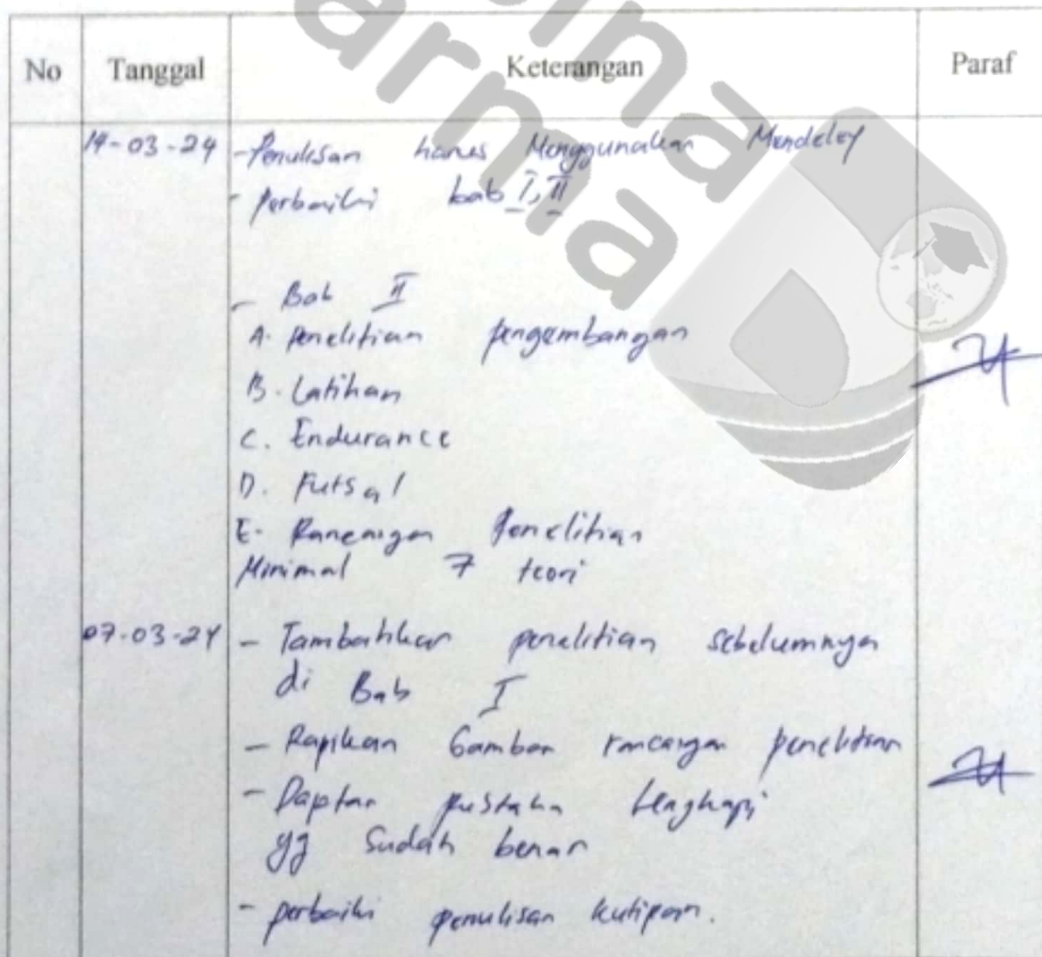 bina
darma
No Tanggal Keterangan Paraf
14-03-24 - Penulisan harus Menggunakan Mendeley
- perbaiki bab I, II
- Bab II
A. Penelitian pengembangan
B. Latihan
C. Endurance
D. Futsal
E. Rancangan Penelitian
Minimal 7 teori
07-03-24 - Tambahkan penelitian sebelumnya
di Bab I
- Rapikan Gambar rancangan penelitian
- Daptar pustaka lengkapi
yg sudah benar
- perbaiki penulisan kutipan.